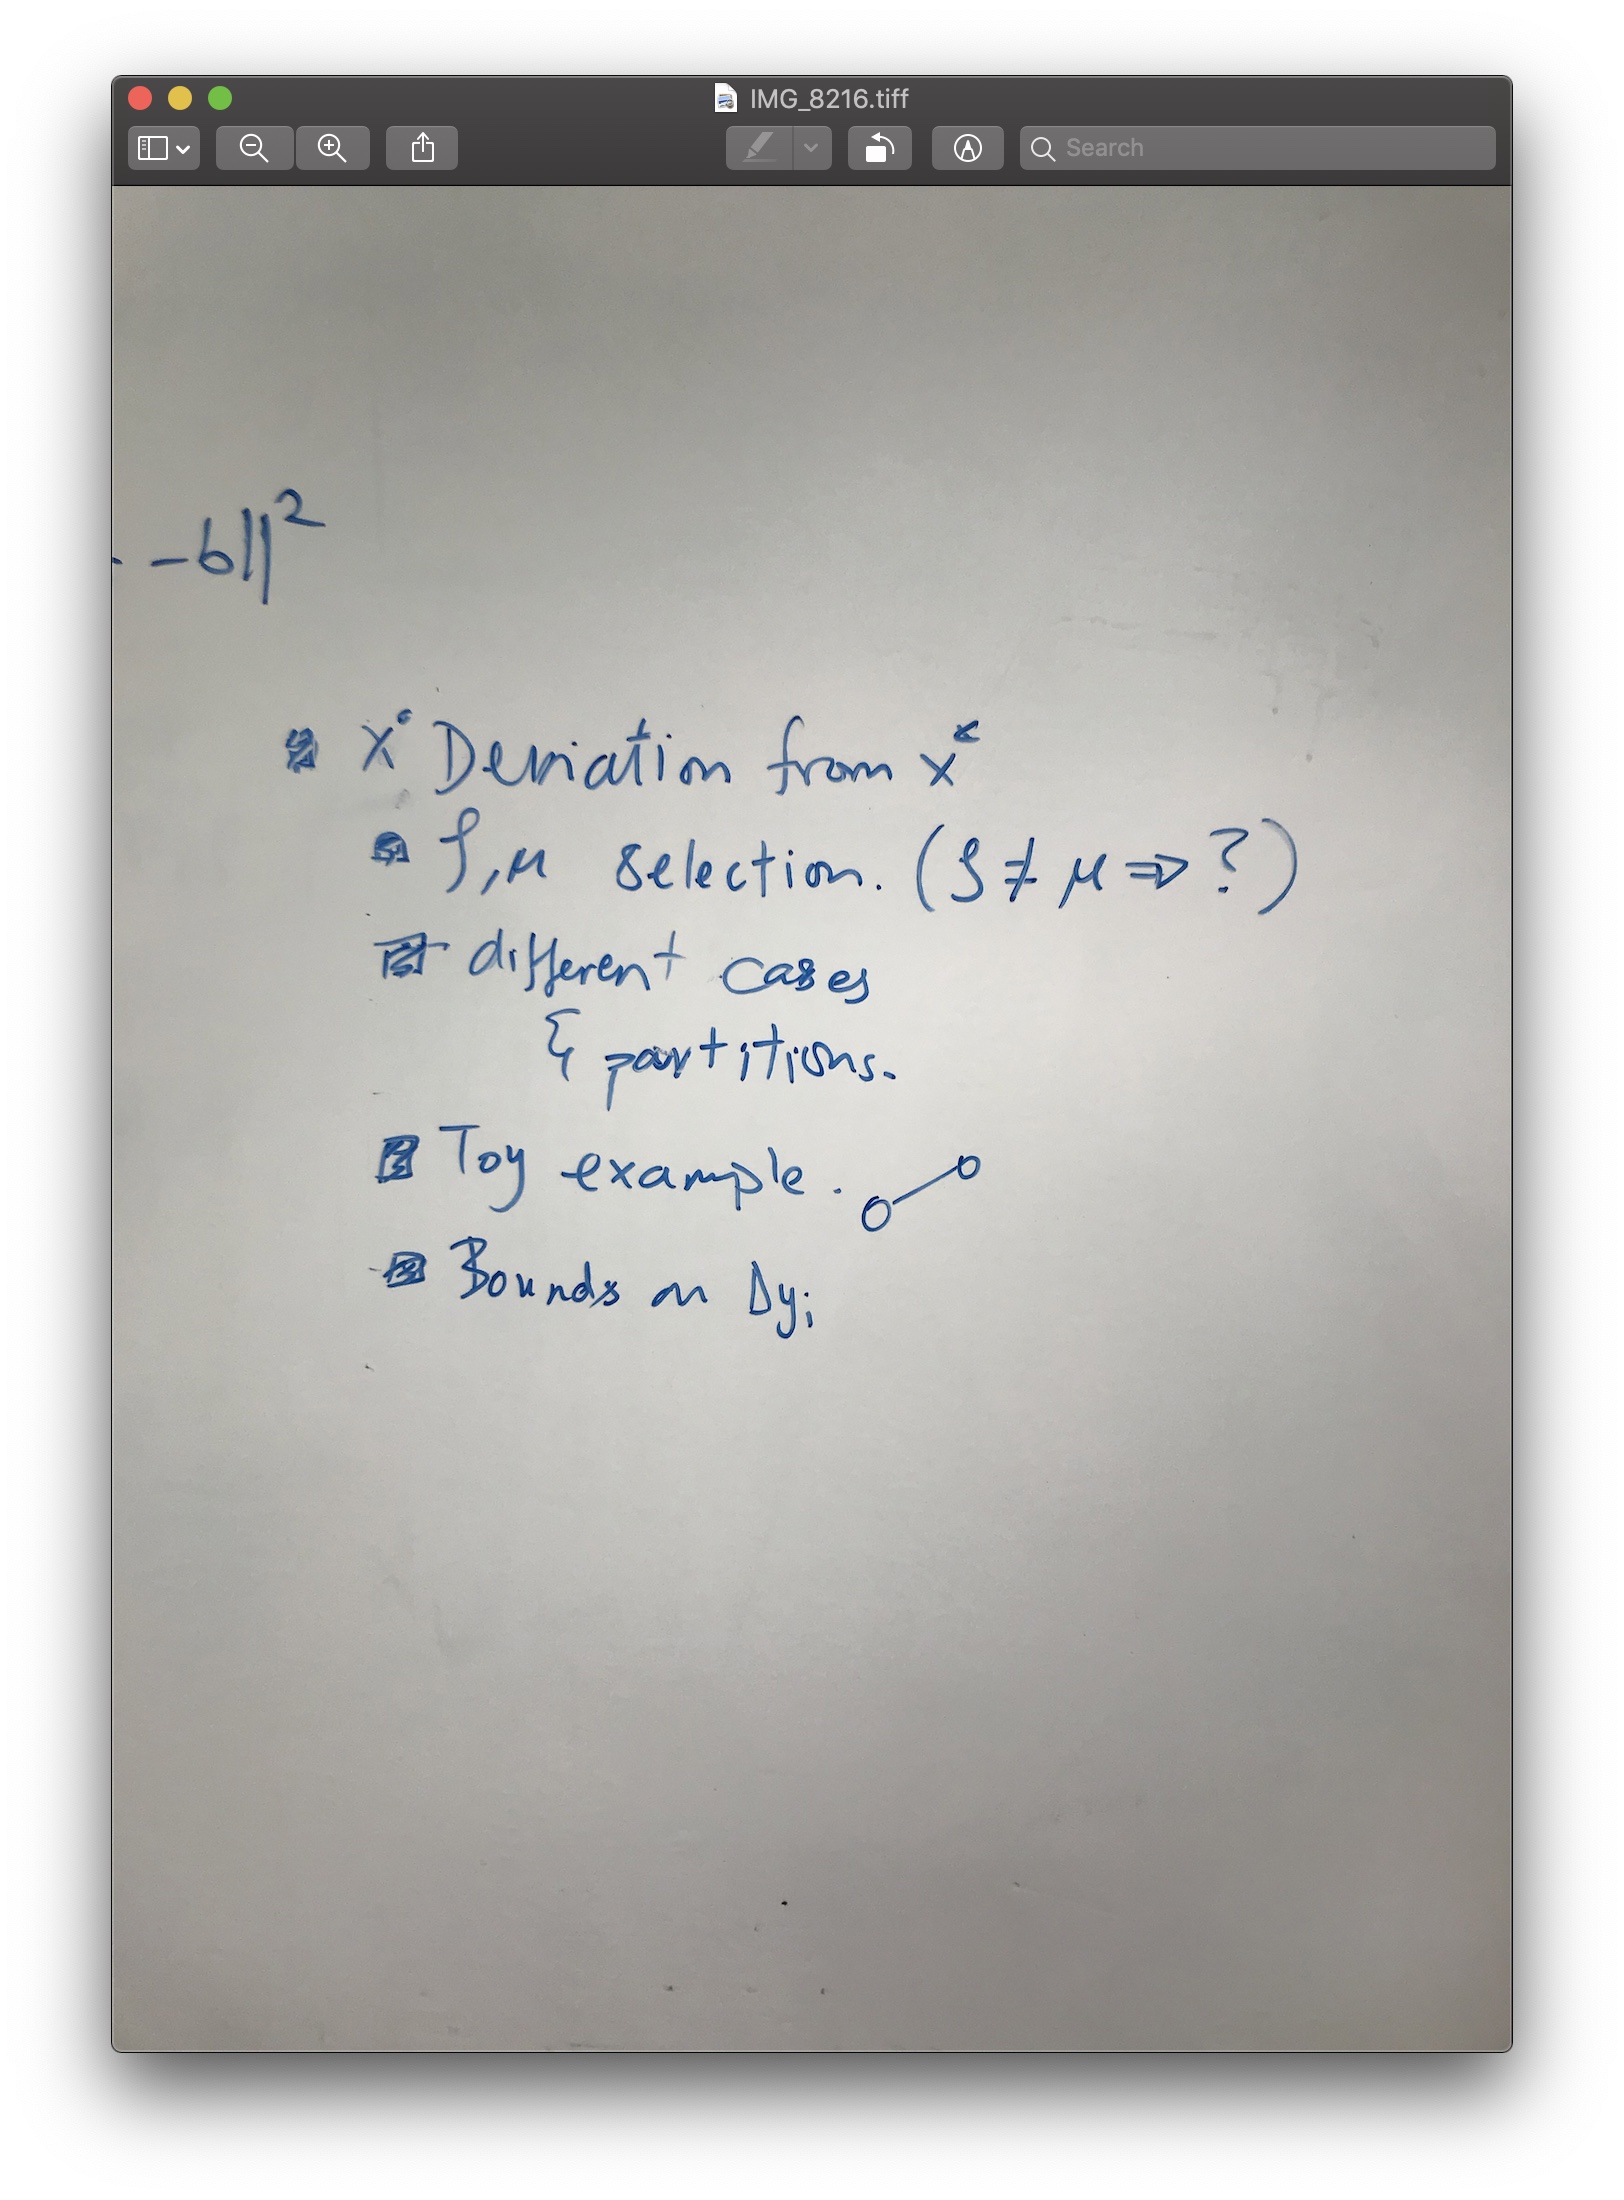 IMG_8216.tiff
Search
- b||²
Deviation from x
ρ, μ selection. (ρ ≠ μ ⇒ ?)
different cases
& partitions.
Toy example.
Bounds on Δyᵢ